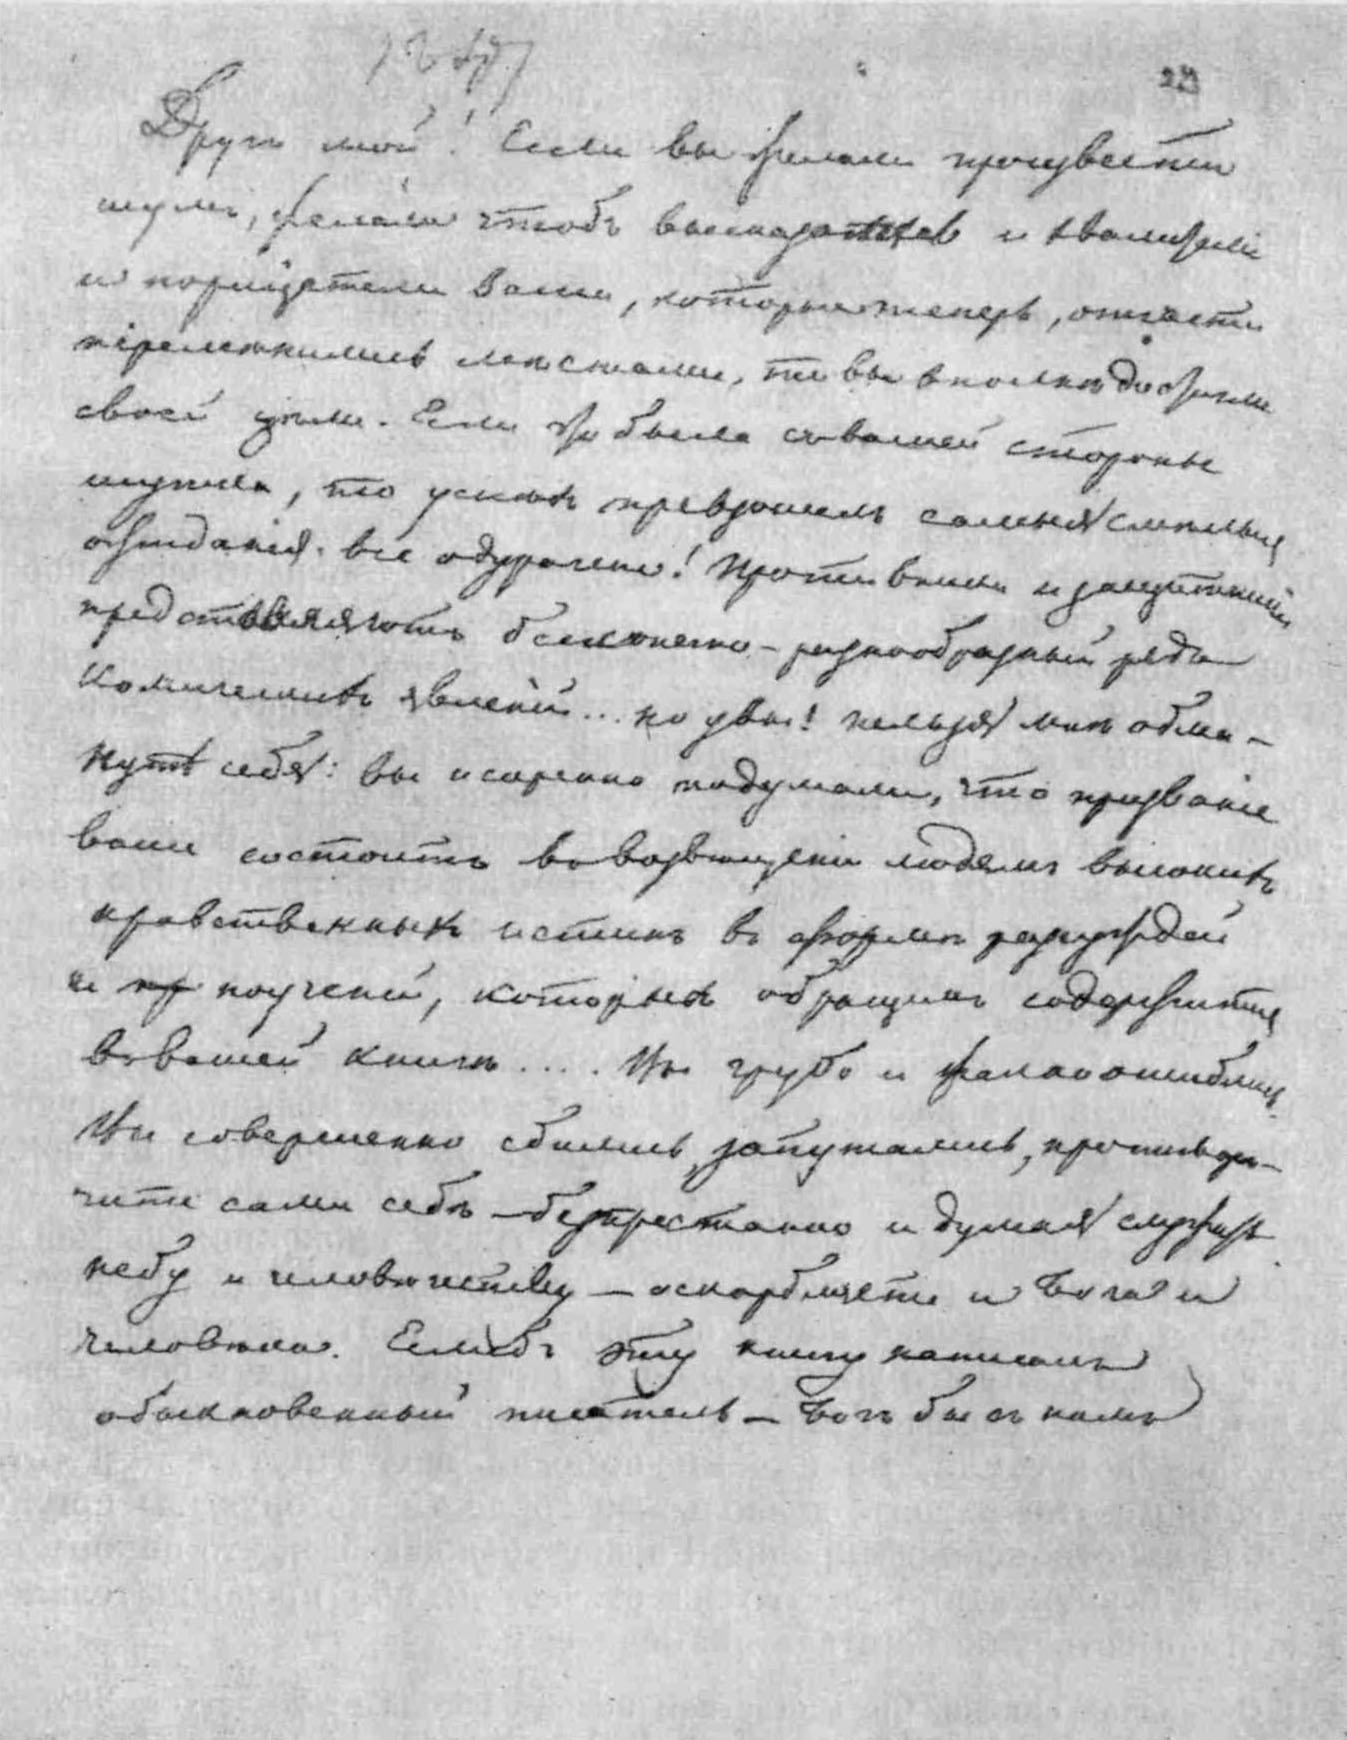 1847
23
Другъ мой! Если вы желали произвести
шумъ, желали чтобъ высказались и хвалители
и порицатели Ваши, которые теперь, отчасти
перемѣнились мѣстами, то вы вполнѣ достигли
своей цѣли. Если это была съ вашей стороны
шутка, то успѣхъ превзошелъ самыя смѣлыя
ожиданія: все одурачено! Противники и защитники
представляютъ безконечно-разнообразный рядъ
комическихъ явленій... но увы! нельзя мнѣ обма-
нуть себя: вы искренно подумали, что призваніе
ваше состоитъ въ возвѣщеніи людямъ высокихъ
нравственныхъ истинъ въ формѣ разсужденій
и поученій, которыхъ образчикъ содержится
въ вашей книгѣ.... Вы грубо и жалко ошиблись.
Вы совершенно сбились, запутались, противорѣ-
чите сами себѣ безпрестанно и думая служить
небу и человѣчеству — оскорбляете и Бога и
человѣка. Еслибъ эту книгу написалъ
обыкновенный писатель — Богъ бы съ нимъ